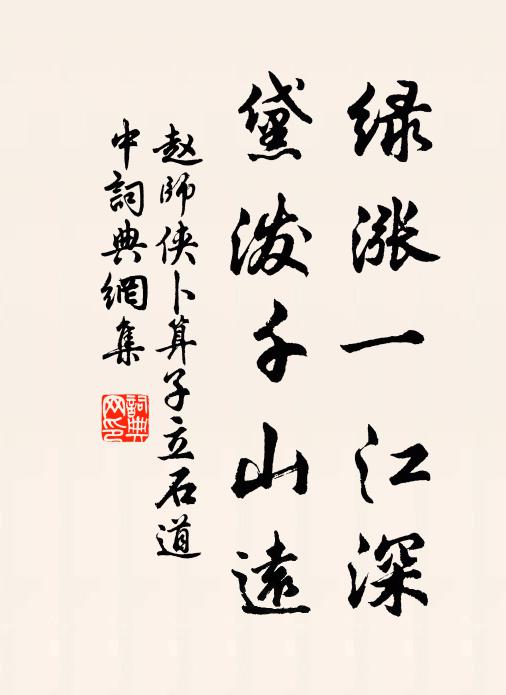 绿涨一江深
黛泼千山遠
赵師侠卜算子立石道
中詞典網集
詞典
网印